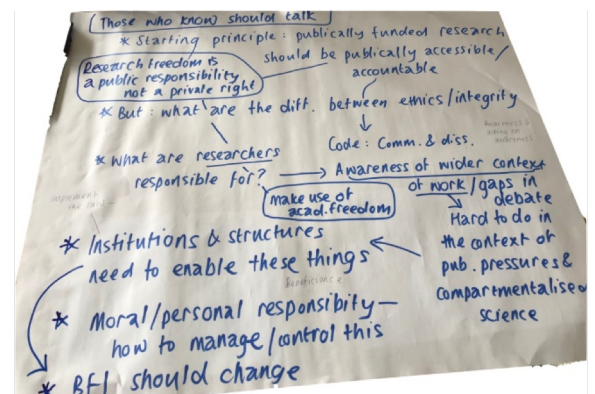 Those who know should talk
* Starting principle: publically funded research
should be publically accessible/
accountable
Research freedom is
a public responsibility
not a private right
* But: what are the diff. between ethics/integrity
Code: Comm. & diss.
Awareness &
acting on
awareness
* What are researchers
responsible for?
Awareness of wider context
of work/gaps in
debate
make use of
acad. freedom
implement
Hard to do in
the context of
pub. pressures &
compartmentalised
science
* Institutions & structures
need to enable these things
Beneficience
* Moral/personal responsibity —
how to manage/control this
* BFI should change